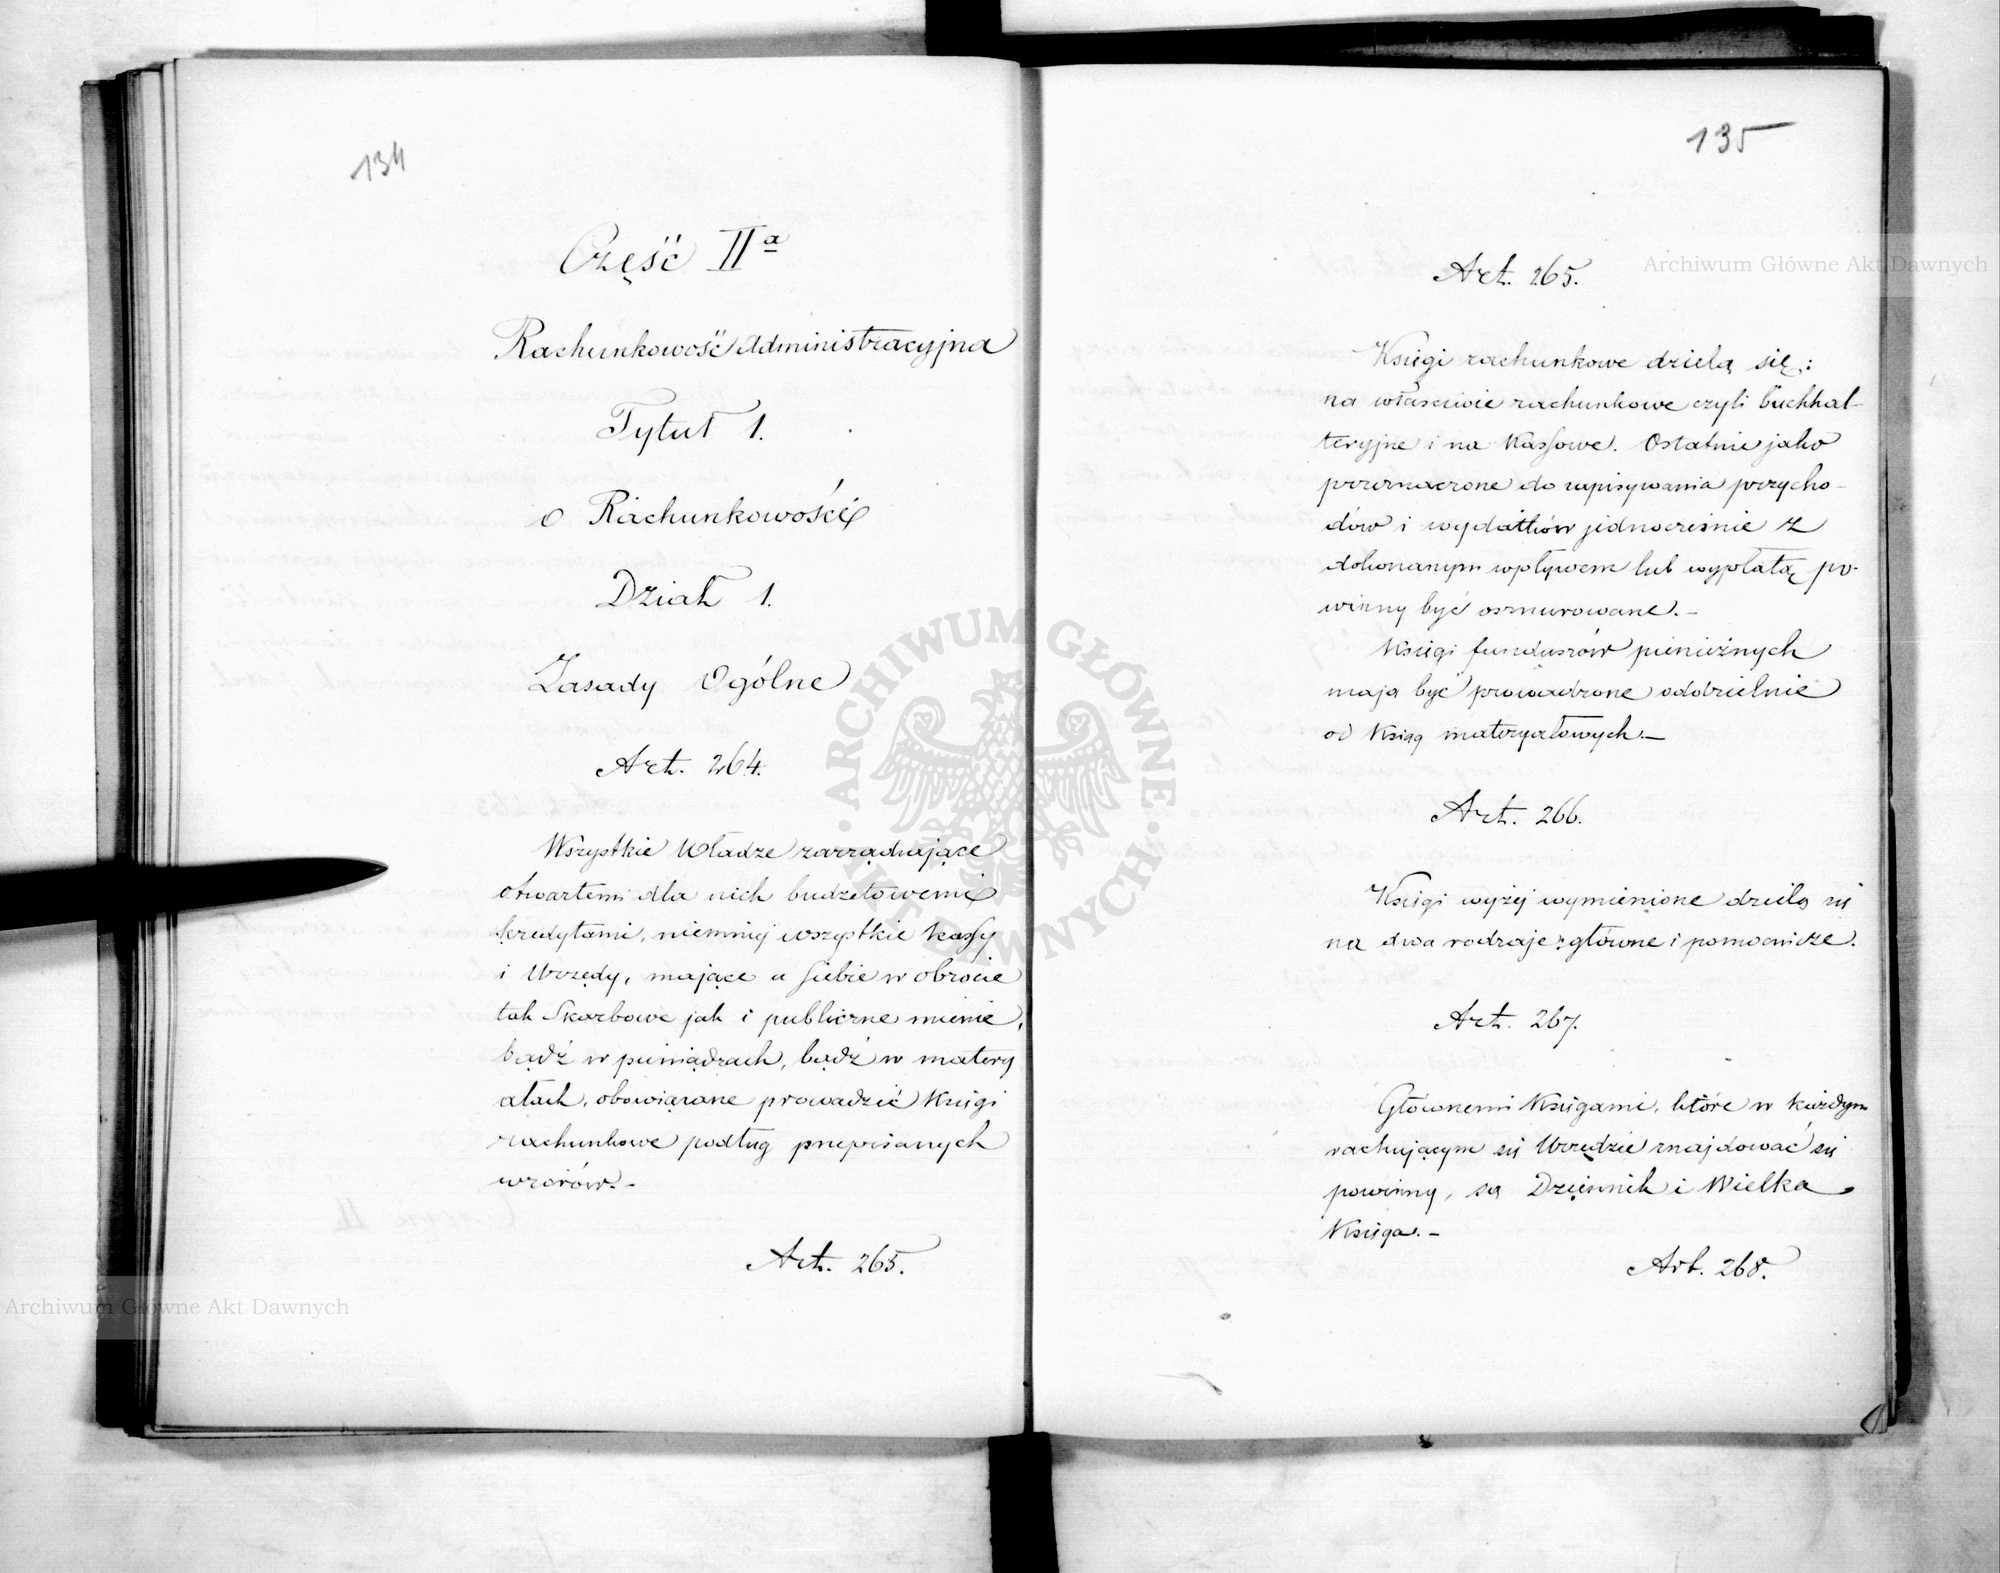 134
Część IIa
Rachunkowość Administracyjna
Tytuł 1.
o Rachunkowości
Dział 1.
Zasady Ogólne
Art. 264.
Wszystkie Władze zarządzające
otwartemi dla nich budżetowemi
kredytami, niemniej wszystkie kassy
i Urzędy, mające u siebie w obrocie
tak Skarbowe jak i publiczne mienie,
bądź w pieniądzach, bądź w matery
ałach, obowiązane prowadzić Księgi
rachunkowe podług przepisanych
wzorów.-
Art. 265.
135
Art. 265.
Księgi rachunkowe dzielą się:
na właściwie rachunkowe czyli buchhal-
teryjne i na Kassowe. Ostatnie jako
przeznaczone do zapisywania przycho-
dów i wydatków jednocześnie z
dokonanym wpływem lub wypłatą po-
winny być osznurowane.-
Księgi funduszów pieniężnych
mają być prowadzone oddzielnie
od Ksiąg materyałowych.-
Art. 266.
Księgi wyżej wymienione dzielą się
na dwa rodzaje: główne i pomocnicze.
Art. 267.
Głównemi Księgami, które w każdym
rachującym się Urzędzie znajdować się
powinny, są Dziennik i Wielka
Księga.-
Art. 268.
Archiwum Główne Akt Dawnych
Archiwum Główne Akt Dawnych
ARCHIWUM GŁÓWNE AKT DAWNYCH